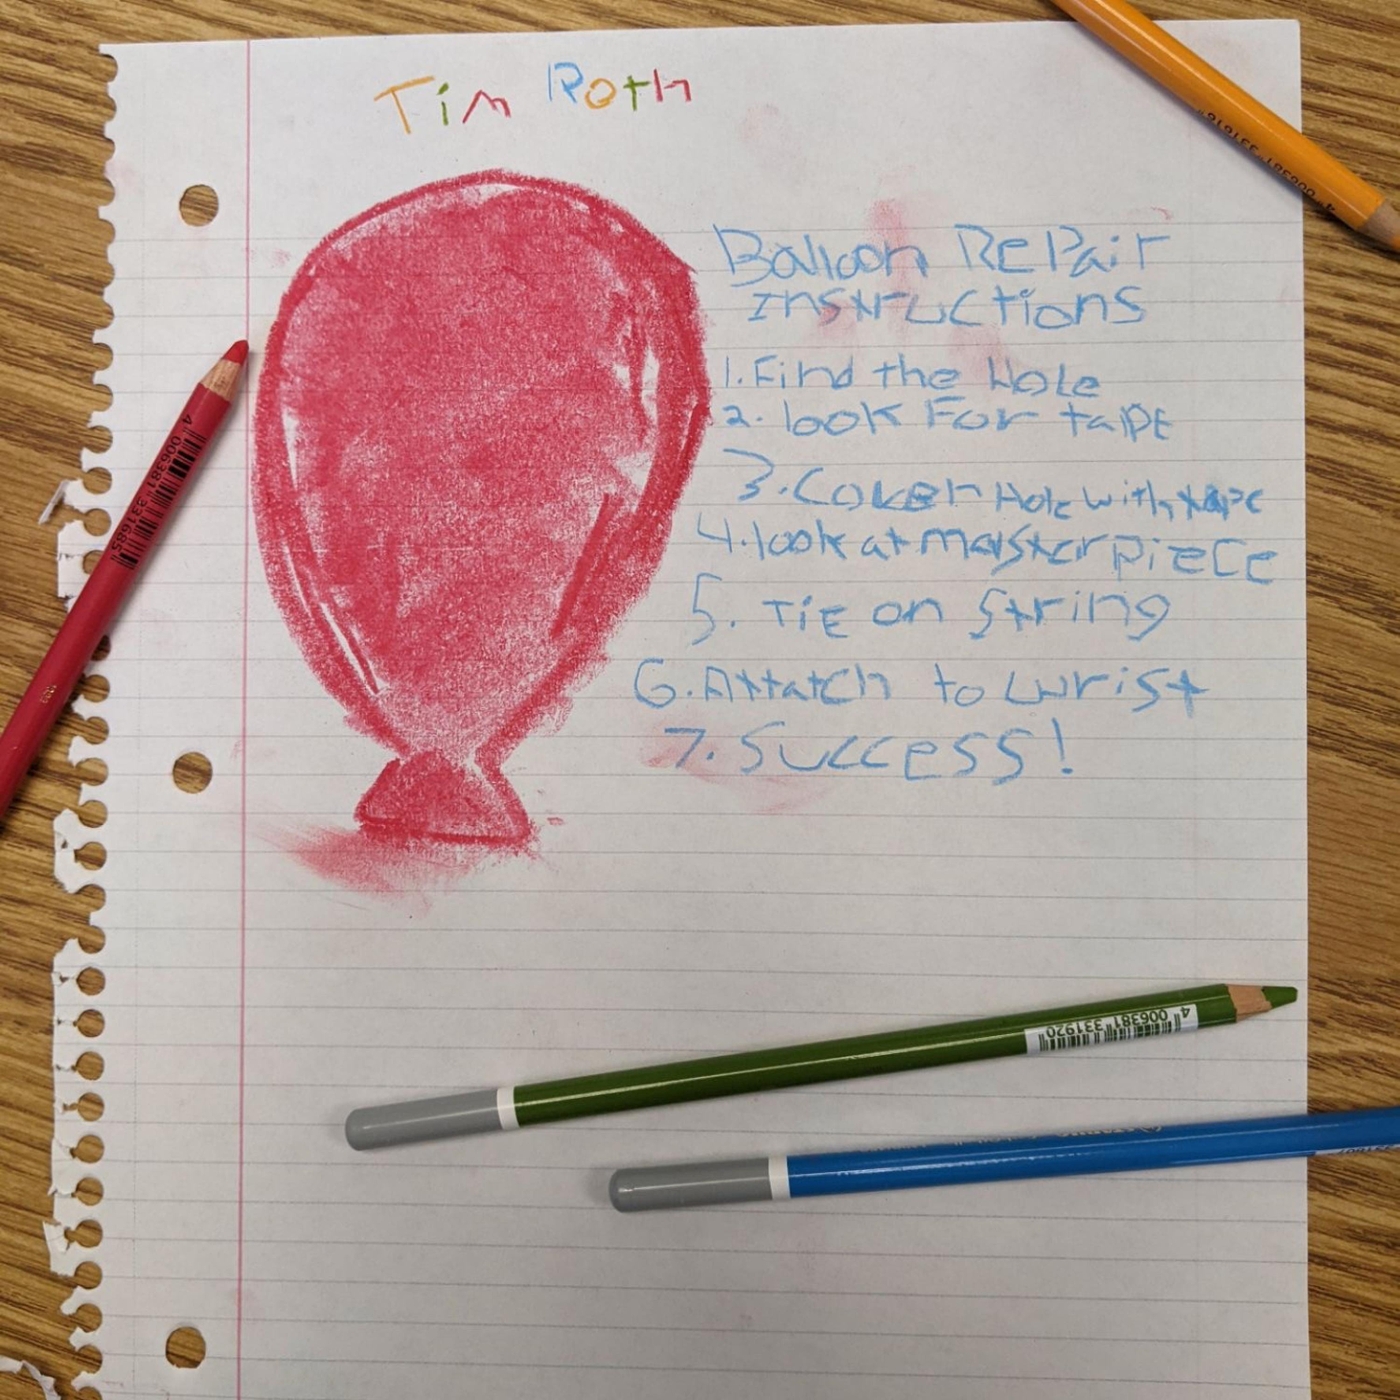 Tim Roth
Balloon RePair
instructions
1. Find the Hole
2. look For tape
3. Cover Hole with tape
4. look at masterpiece
5. TiE on String
6. Attatch to wrist
7. Success!
4 006381 331685
4 006381 331920